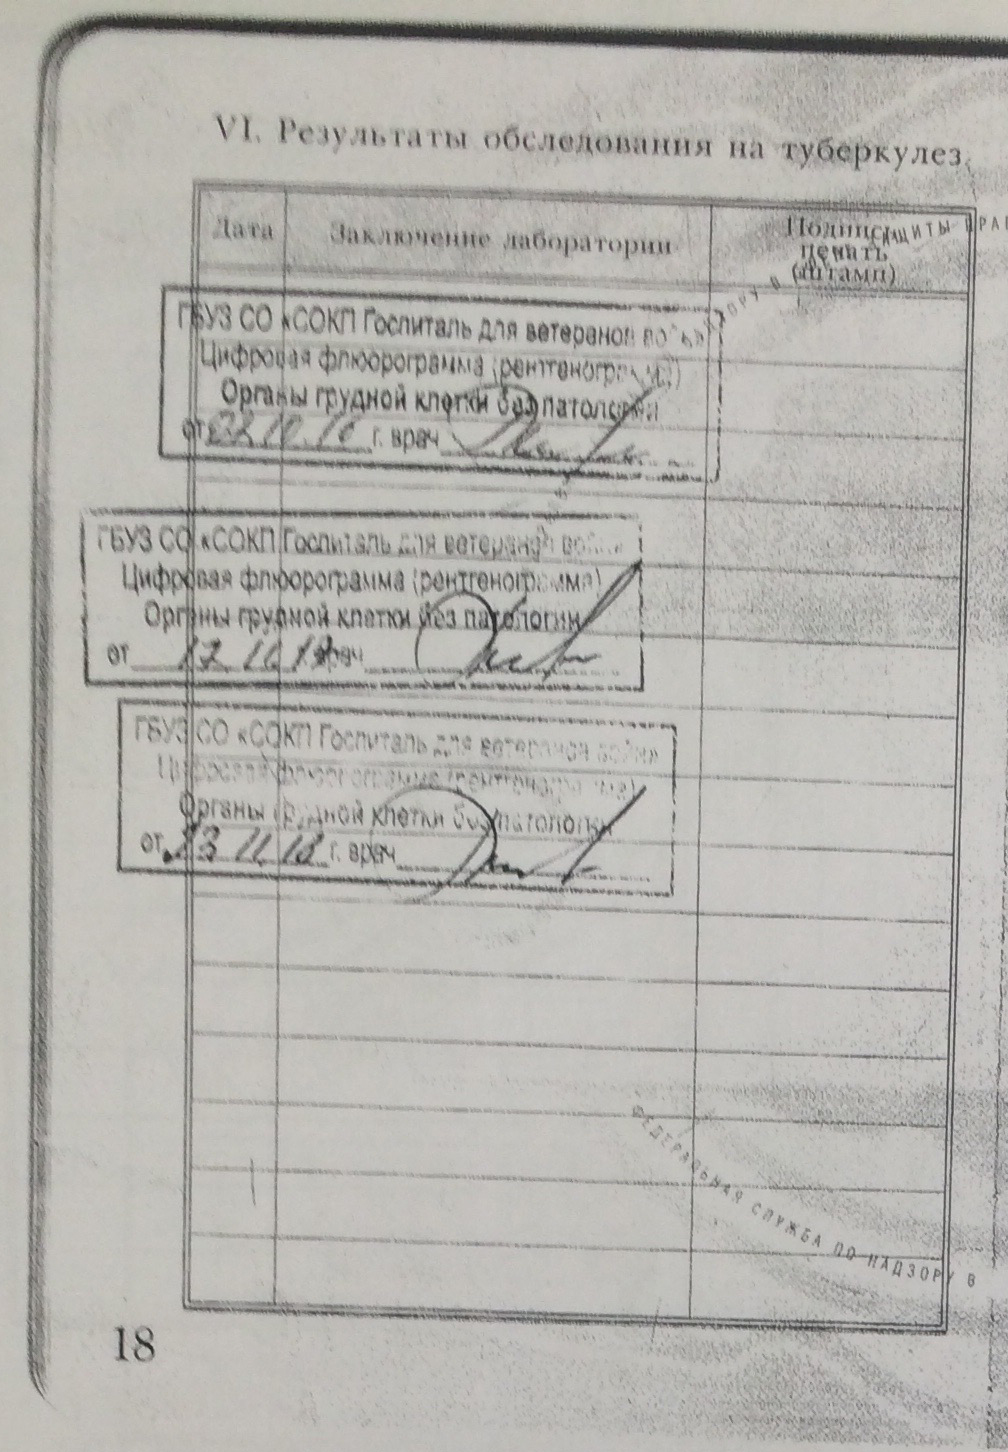 VI. Результаты обследования на туберкулез.
Дата
Заключение лаборатории
Подпись,
печать
(штамп)
ГБУЗ СО «СОКП Госпиталь для ветеранов
Цифровая флюорограмма (рентгенограмма)
Органы грудной клетки без патологии
от 10.16 г. врач
ГБУЗ СО «СОКП Госпиталь для ветеранов войн»
Цифровая флюорограмма (рентгенограмма)
Органы грудной клетки без патологии
от 17 врач
ГБУЗ СО «СОКП Госпиталь для ветеранов войн»
Цифровая флюорограмма (рентгенограмма)
Органы грудной клетки без патологии
от 23 11.18 г. врач
ФЕДЕРАЛЬНАЯ СЛУЖБА ПО НАДЗОРУ В
18